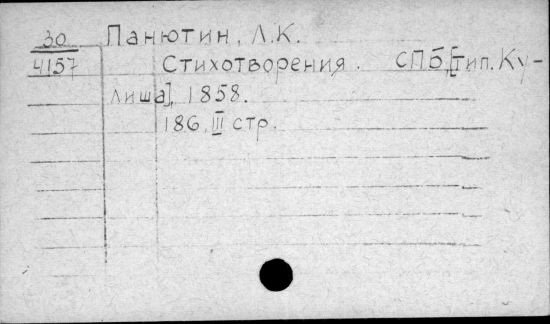 30 Панютин, Л.К.
4157 Стихотворения. СПб, [тип. Ку-
лиша], 1858.
186, III стр.